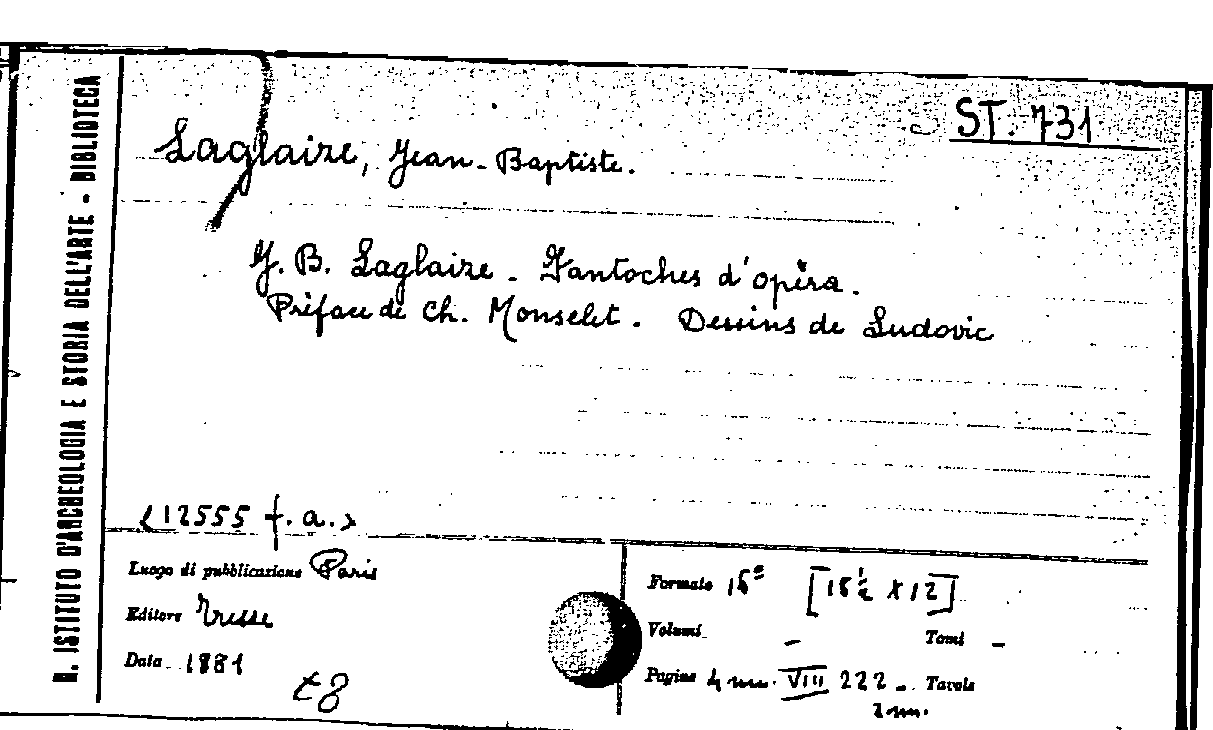 R. ISTITUTO D'ARCHEOLOGIA E STORIA DELL'ARTE - BIBLIOTECA
ST. 731
Laglaize, Jean-Baptiste.
J. B. Laglaize. Fantoches d'opéra.
Préface de Ch. Monselet. Dessins de Ludovic
<12555 f.a.>
Luogo di pubblicazione Paris
Editore Tresse
Data 1881
t8
Formato 16º [18½ X 12]
Volumi - Tomi -
Pagine 4 nn. VIII 222 - Tavole
2 nn.